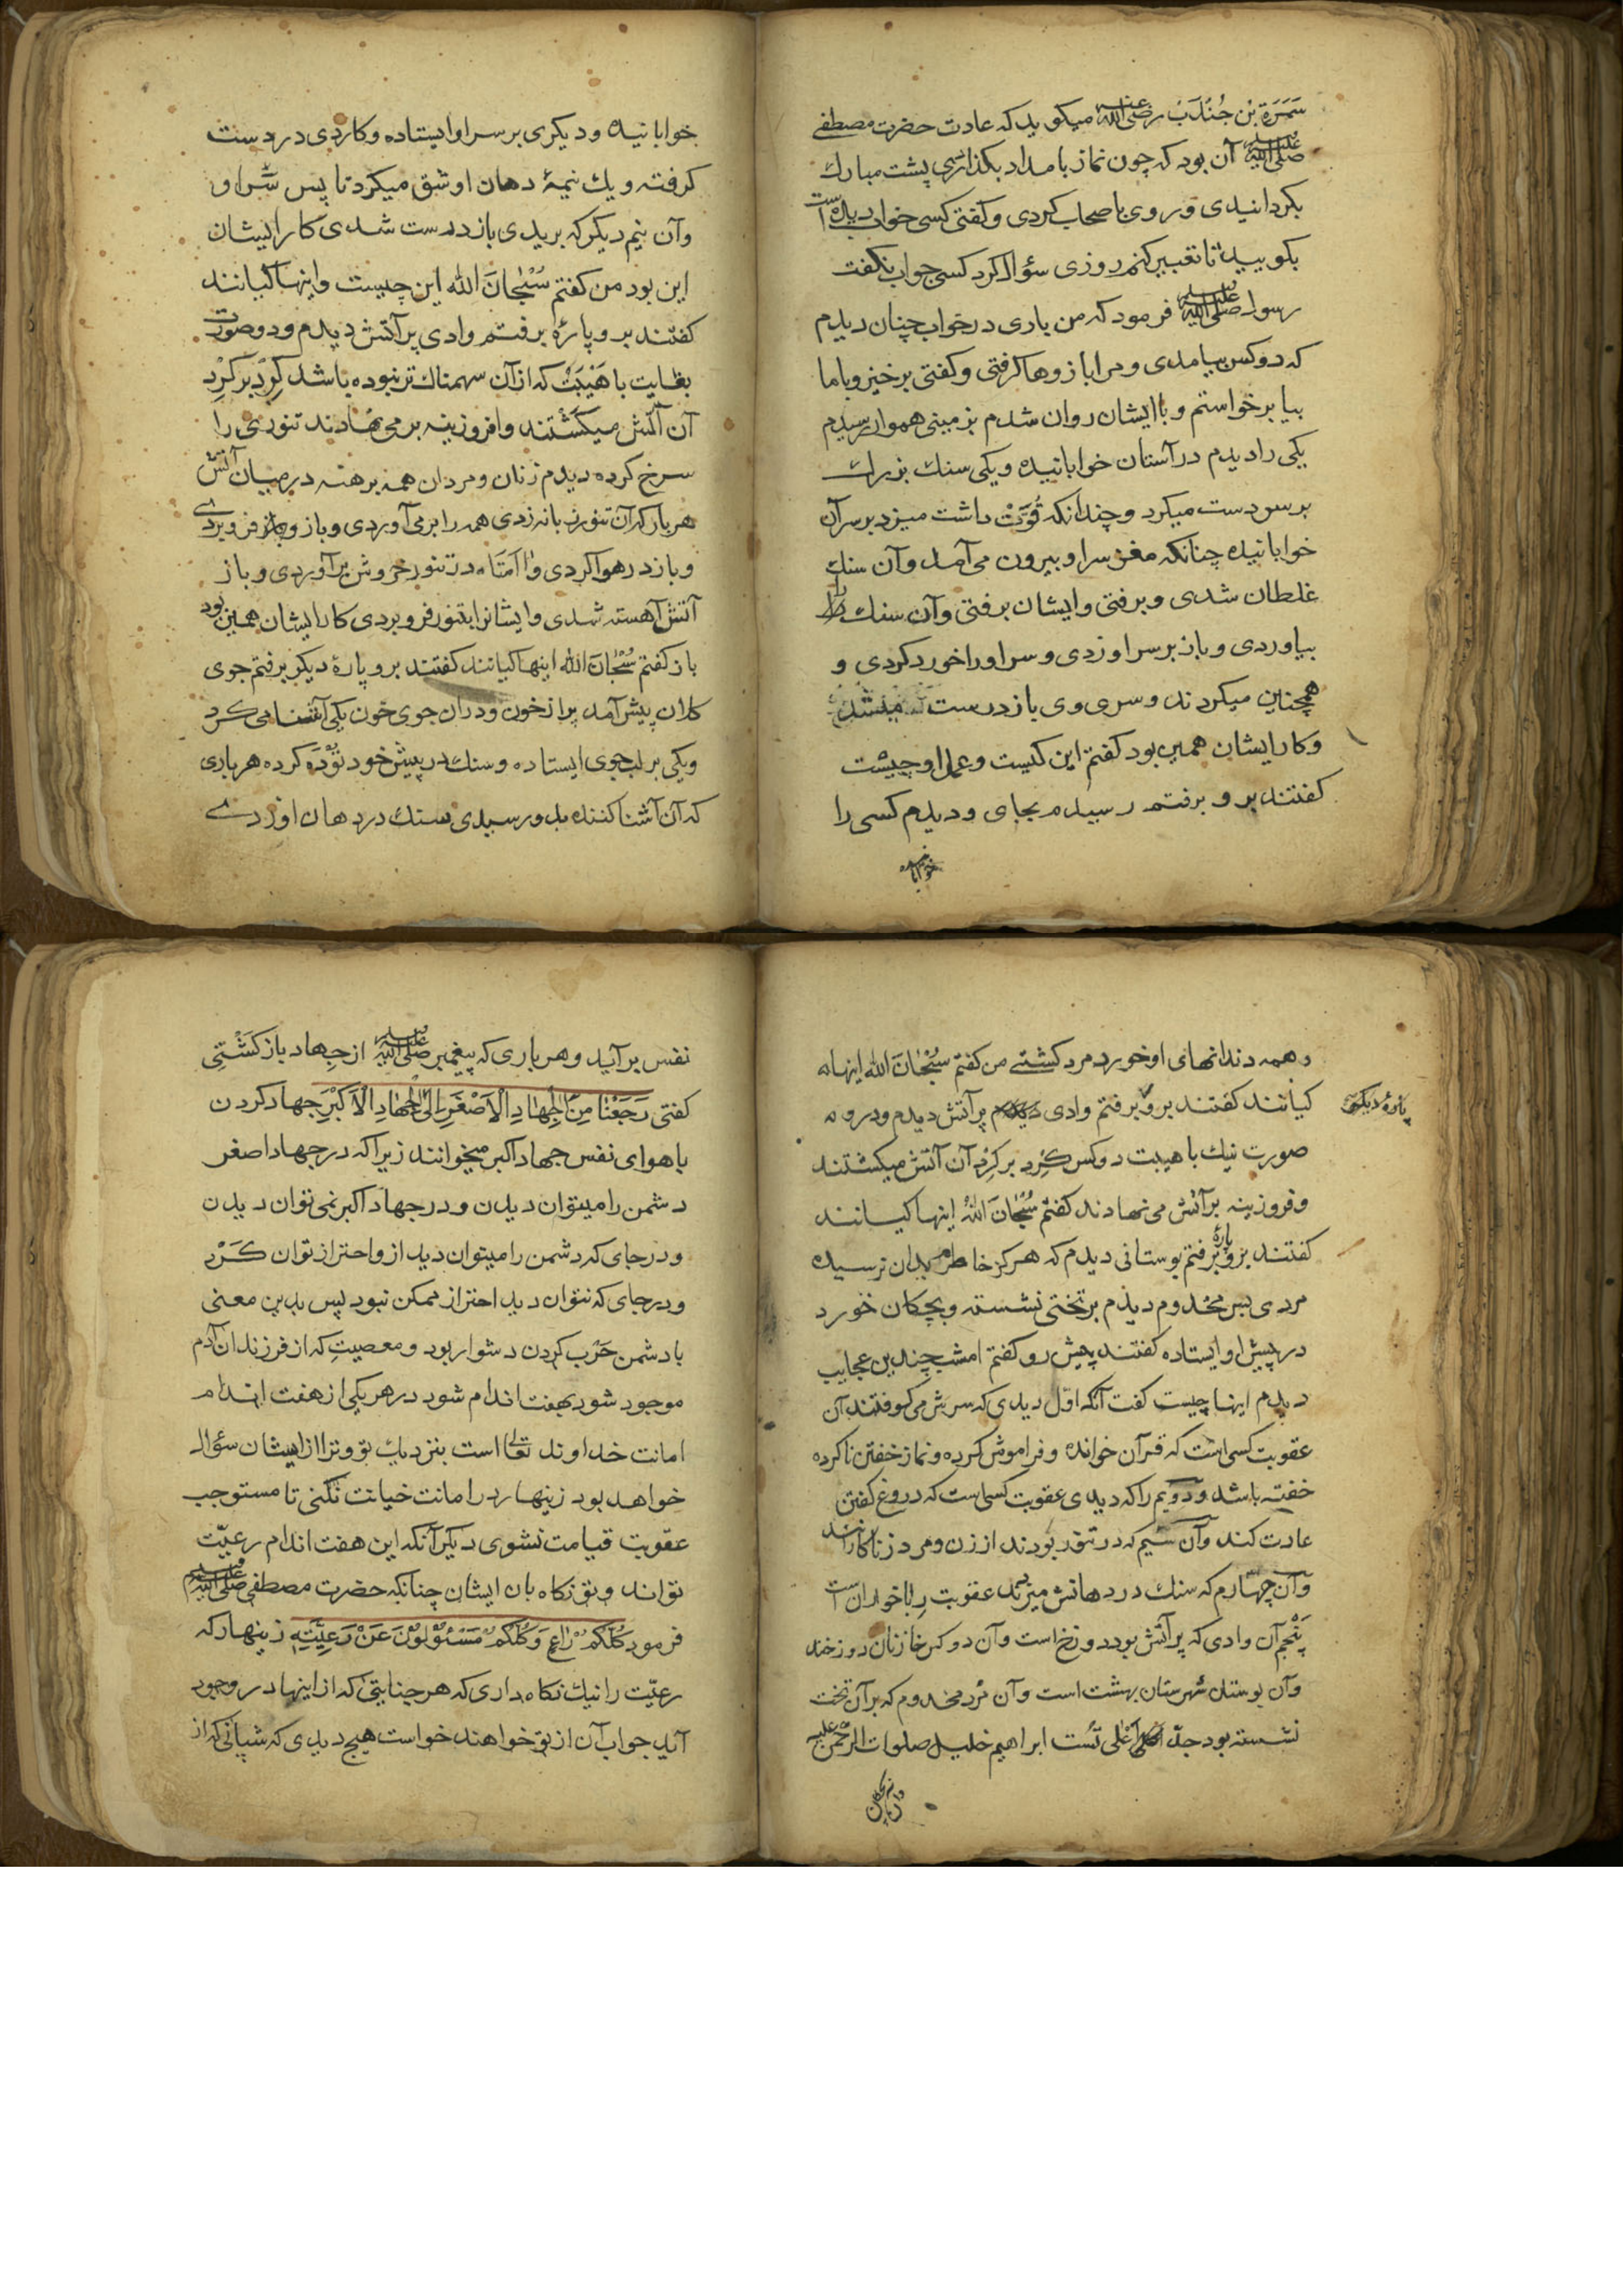 سَمَرَة بْن جُنْدَبْ رضی الله عنه میکوید که عادت حضرت مصطفی
صلی الله علیه وسلم آن بود که چون نماز بامداد بکذاردی پشت مبارک
بکردانیدی و روی باصحاب کردی و کفتی کسی خواب دیده است
بکویید تا تعبیر کنم روزی سؤال کرد کسی جواب نکفت
رسول صلی الله علیه وسلم فرمود که من باری در خواب چنان دیدم
که دو کس بیامدی و مرا بازوها کرفتی و کفتی برخیز و باما
بیا برخواستم و با ایشان روان شدم بزمینی هموار رسیدم
یکی را دیدم در آستان خوابانیده و یکی سنک بزرک
بر سر دست میکرد و چندانکه قُوَّتْ داشت میزد بر سر آن
خوابانیده چنانکه مغز سر او بیرون می آمد و آن سنک
غلطان شدی و برفتی و ایشان برفتی و آن سنک را
بیاوردی و باز بر سر او زدی و سر او را خورد کردی و
همچنین میکردند و سر وی باز درست میشد
و کار ایشان همین بود کفتم این کیست و عمل او چیست
کفتند برو برفتم رسیدم بجای و دیدم کسی را
خوابانیده
خوابانیده و دیکری بر سر او ایستاده و کاردی در دست
کرفته و یک نیمهٔ دهان او شق میکرد تا پس سر او
و آن نیم دیکر که بریدی باز درست شدی کار ایشان
این بود من کفتم سُبْحَانَ الله این چیست و اینها کیانند
کفتند برو پارهٔ برفتم وادی پر آتش دیدم و دو صورت
بغایت با هَیْبَتْ که از آن سهمناک تر نبوده باشد کِرْد بر کِرْدِ
آن آتش میکشتند و افروزینه بر می نهادند تنوری را
سرخ کرده دیدم زنان و مردان همه برهنه در میان آتش
هر بار که آن تنور زبانه زدی همه را بر می آوردی و باز فرو بردی
و باز در هوا کردی در تنور خروش بر آوردی و باز
آتش آهسته شدی و ایشانرا بتنور فرو بردی کار ایشان همین بود
باز کفتم سُبْحَانَ الله اینها کیانند کفتند برو پارهٔ دیکر برفتم جوی
کلان پیش آمد پر از خون و در آن جوی خون یکی آشنا می کرد
و یکی بر لب جوی ایستاده و سنک در پیش خود تُوْدَه کرده هر باری
که آن آشنا کننده بدو رسیدی سنک در دهان او زدے
و همه دندانهای او خورد مرد کشتے من کفتم سُبْحَانَ الله اینها
کیانند کفتند برو برفتم وادی پر آتش دیدم و درو
پارهٔ دیکر
صورت نیک با هیبت دو کس کِرْد بر کِرْد آن آتش میکشتند
و فروزینه بر آتش می نهادند کفتم سُبْحَانَ اللهْ اینها کیانند
کفتند برو پارهٔ برفتم بوستانی دیدم که هرکز خاطرم بدان نرسیده
مردی بس مخدوم دیدم بر تختی نشسته و بچکان خورد
در پیش او ایستاده کفتند پیش رو کفتم امشب چندین عجایب
دیدم اینها چیست کفت آنکه اوّل دیدی که سرش می کوفتند آن
عقوبت کسی است که قرآن خوانده و فراموش کرده و نماز خفتن ناکرده
خفته باشد و دویم را که دیدی عقوبت کسی است که دروغ کفتن
عادت کند و آن سیم که در تنور بودند از زن و مرد زناکارانند
و آن چهارم که سنک در دهانش میزند عقوبت رباخواران است
پنجم آن وادی که پر آتش بود دوزخ است و آن دو کس خازنان دوزخند
و آن بوستان شهرستان بهشت است و آن مَرْد مخدوم که بر آن تخت
نشسته بود جدّ اَعْلی تُسْت ابراهیم خلیل صلوات الرحمن علیه
نفس برآید و هر باری که پیغمبر صلی الله علیه وسلم از جهاد باز کَشْتِی
کفتی رَجَعْنَا مِنَ الْجِهَادِ الْاَصْغَرِ اِلَی الْجِهَادِ الْاَکْبَرِ جهاد کردن
با هوای نفس جهاد اکبر میخوانند زیرا که در جهاد اصغر
دشمن را میتوان دیدن و در جهاد اکبر نمی توان دیدن
و در جای که دشمن را میتوان دید ازو احتراز توان کَرْد
و در جای که نتوان دید احتراز ممکن نبود پس بدین معنی
با دشمن حَرْب کردن دشوار بود و معصیتِ که از فرزندان آدم
موجود شود بهفت اندام شود در هر یکی از هفت اندام
امانت خداوند تعالی است بنزدیک تو و ترا از ایشان سؤال
خواهد بود زینهار در امانت خیانت نکنی تا مستوجب
عقوبت قیامت نشوی دیکر آنکه این هفت اندام رعیّت
تواند و تو نکاه بان ایشان چنانکه حضرت مصطفی صلی الله علیه وسلم
فرمود کُلُّکُمْ رَاعٍ وَکُلُّکُمْ مَسْئُوْلُوْنَ عَنْ رَعِیَّتِهٖ زینهار که
رعیّت را نیک نکاه داری که هر جنایتی که از اینها در وجود
آید جواب آن از تو خواهند خواست هیچ دیدی که شبانی که از